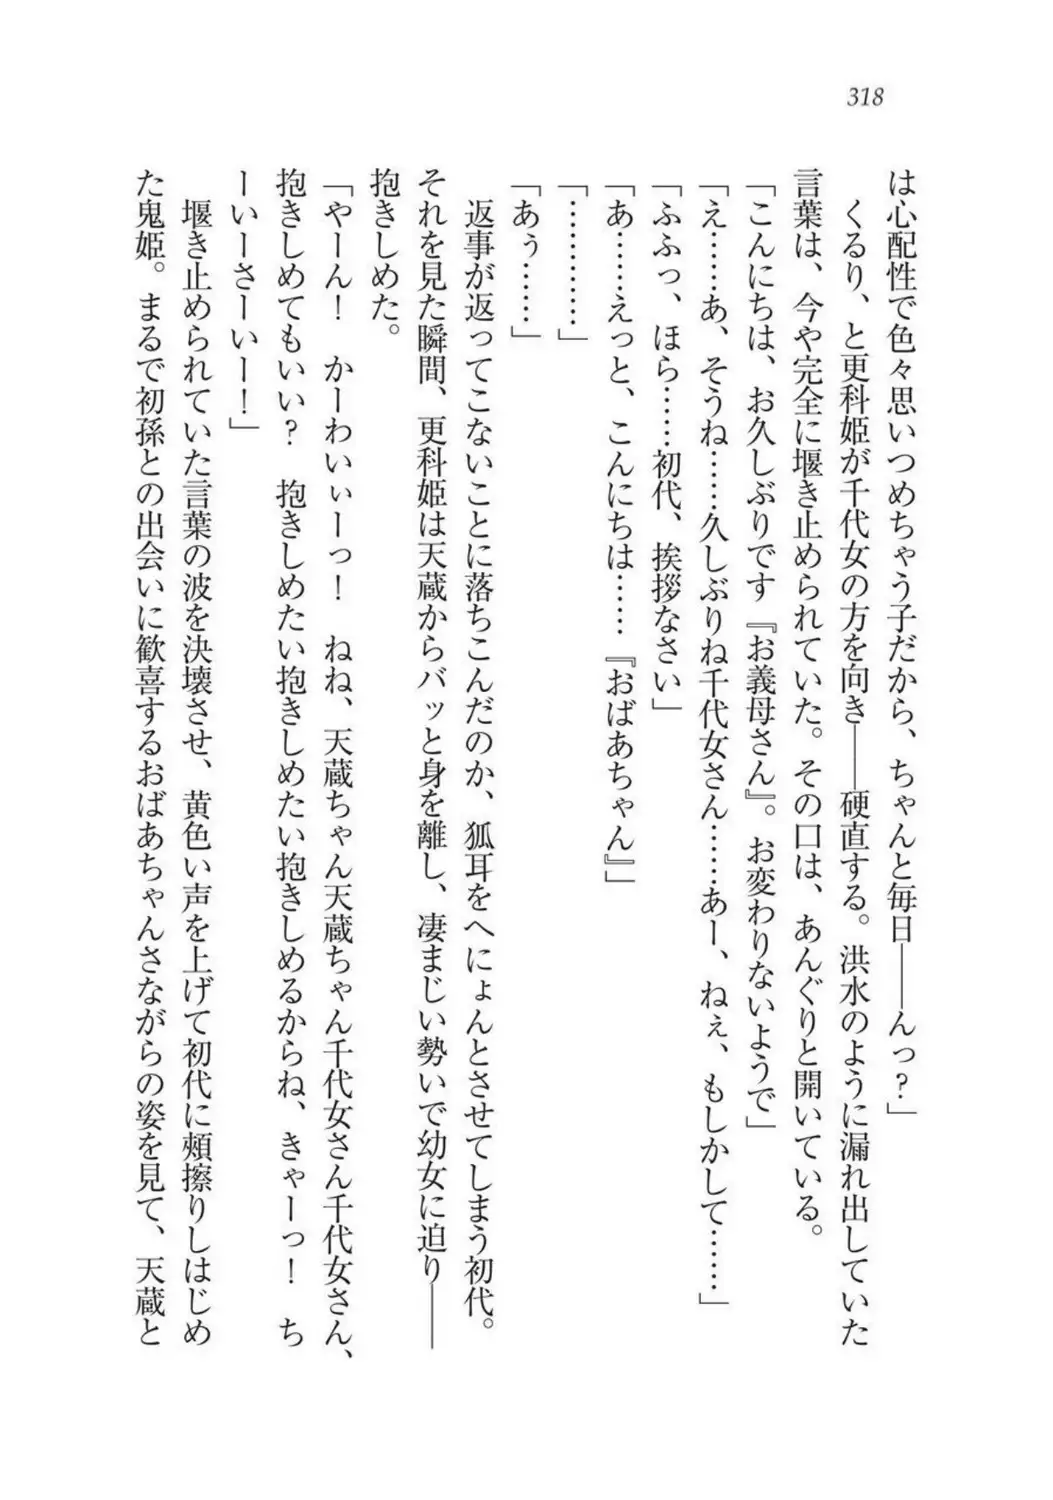 318
は心配性で色々思いつめちゃう子だから、ちゃんと毎日――んっ?」
　くるり、と更科姫が千代女の方を向き――硬直する。洪水のように漏れ出していた
言葉は、今や完全に堰き止められていた。その口は、あんぐりと開いている。
「こんにちは、お久しぶりです『お義母さん』。お変わりないようで」
「え……あ、そうね……久しぶりね千代女さん……あー、ねぇ、もしかして……」
「ふふっ、ほら……初代、挨拶なさい」
「あ……えっと、こんにちは……『おばあちゃん』」
「…………」
「あぅ……」
　返事が返ってこないことに落ちこんだのか、狐耳をへにょんとさせてしまう初代。
それを見た瞬間、更科姫は天蔵からバッと身を離し、凄まじい勢いで幼女に迫り――
抱きしめた。
「やーん!　かーわいぃーっ!　ねね、天蔵ちゃん天蔵ちゃん千代女さん千代女さん、
抱きしめてもいい?　抱きしめたい抱きしめたい抱きしめるからね、きゃーっ!　ち
ーいーさーいー!」
　堰き止められていた言葉の波を決壊させ、黄色い声を上げて初代に頬擦りしはじめ
た鬼姫。まるで初孫との出会いに歓喜するおばあちゃんさながらの姿を見て、天蔵と